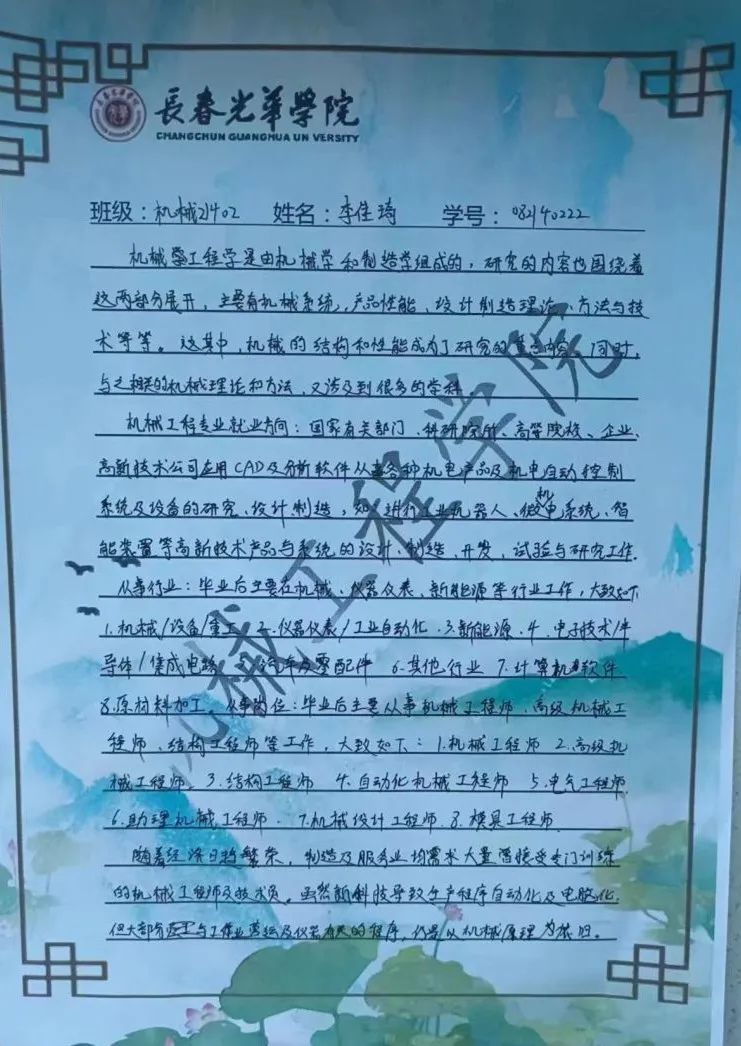 長春光華學院
CHANGCHUN GUANGHUA UN VERSITY
班级：机械21402 姓名：李佳琦 学号：082140222
机械工程学是由机械学和制造学组成的，研究的内容也围绕着
这两部分展开，主要有机械系统，产品性能、设计制造理论、方法与技
术等等。这其中，机械的结构和性能成为了研究的重点内容，同时，
与之相关的机械理论和方法，又涉及到很多的学科
机械工程专业就业方向：国家有关部门、科研院所、高等院校、企业、
高新技术公司应用CAD及分析软件从事各种机电产品及机电自动控制
系统及设备的研究、设计制造，如：进行工业机器人、微机电系统、智
能装置等高新技术产品与系统的设计、制造、开发、试验与研究工作.
从事行业：毕业后主要在机械、仪器仪表、新能源等行业工作，大致如下
1.机械/设备/重工 2.仪器仪表/工业自动化 3.新能源 4.电子技术/半
导体/集成电路 汽车及零配件 6.其他行业 7.计算机软件
8.原材料加工。从事岗位：毕业后主要从事机械工程师、高级机械工
程师、结构工程师等工作，大致如下：1.机械工程师 2.高级机
械工程师 3.结构工程师 4.自动化机械工程师 5.电气工程师
6.助理机械工程师. 7.机械设计工程师 8.模具工程师
随着经济日趋繁荣，制造及服务业均需求大量曾接受专门训练
的机械工程师及技术员。虽然新科技导致生产程序自动化及电脑化，
但大部分与工业营运及仪器有关的程序，仍是以机械原理为依归。
机械工程学院